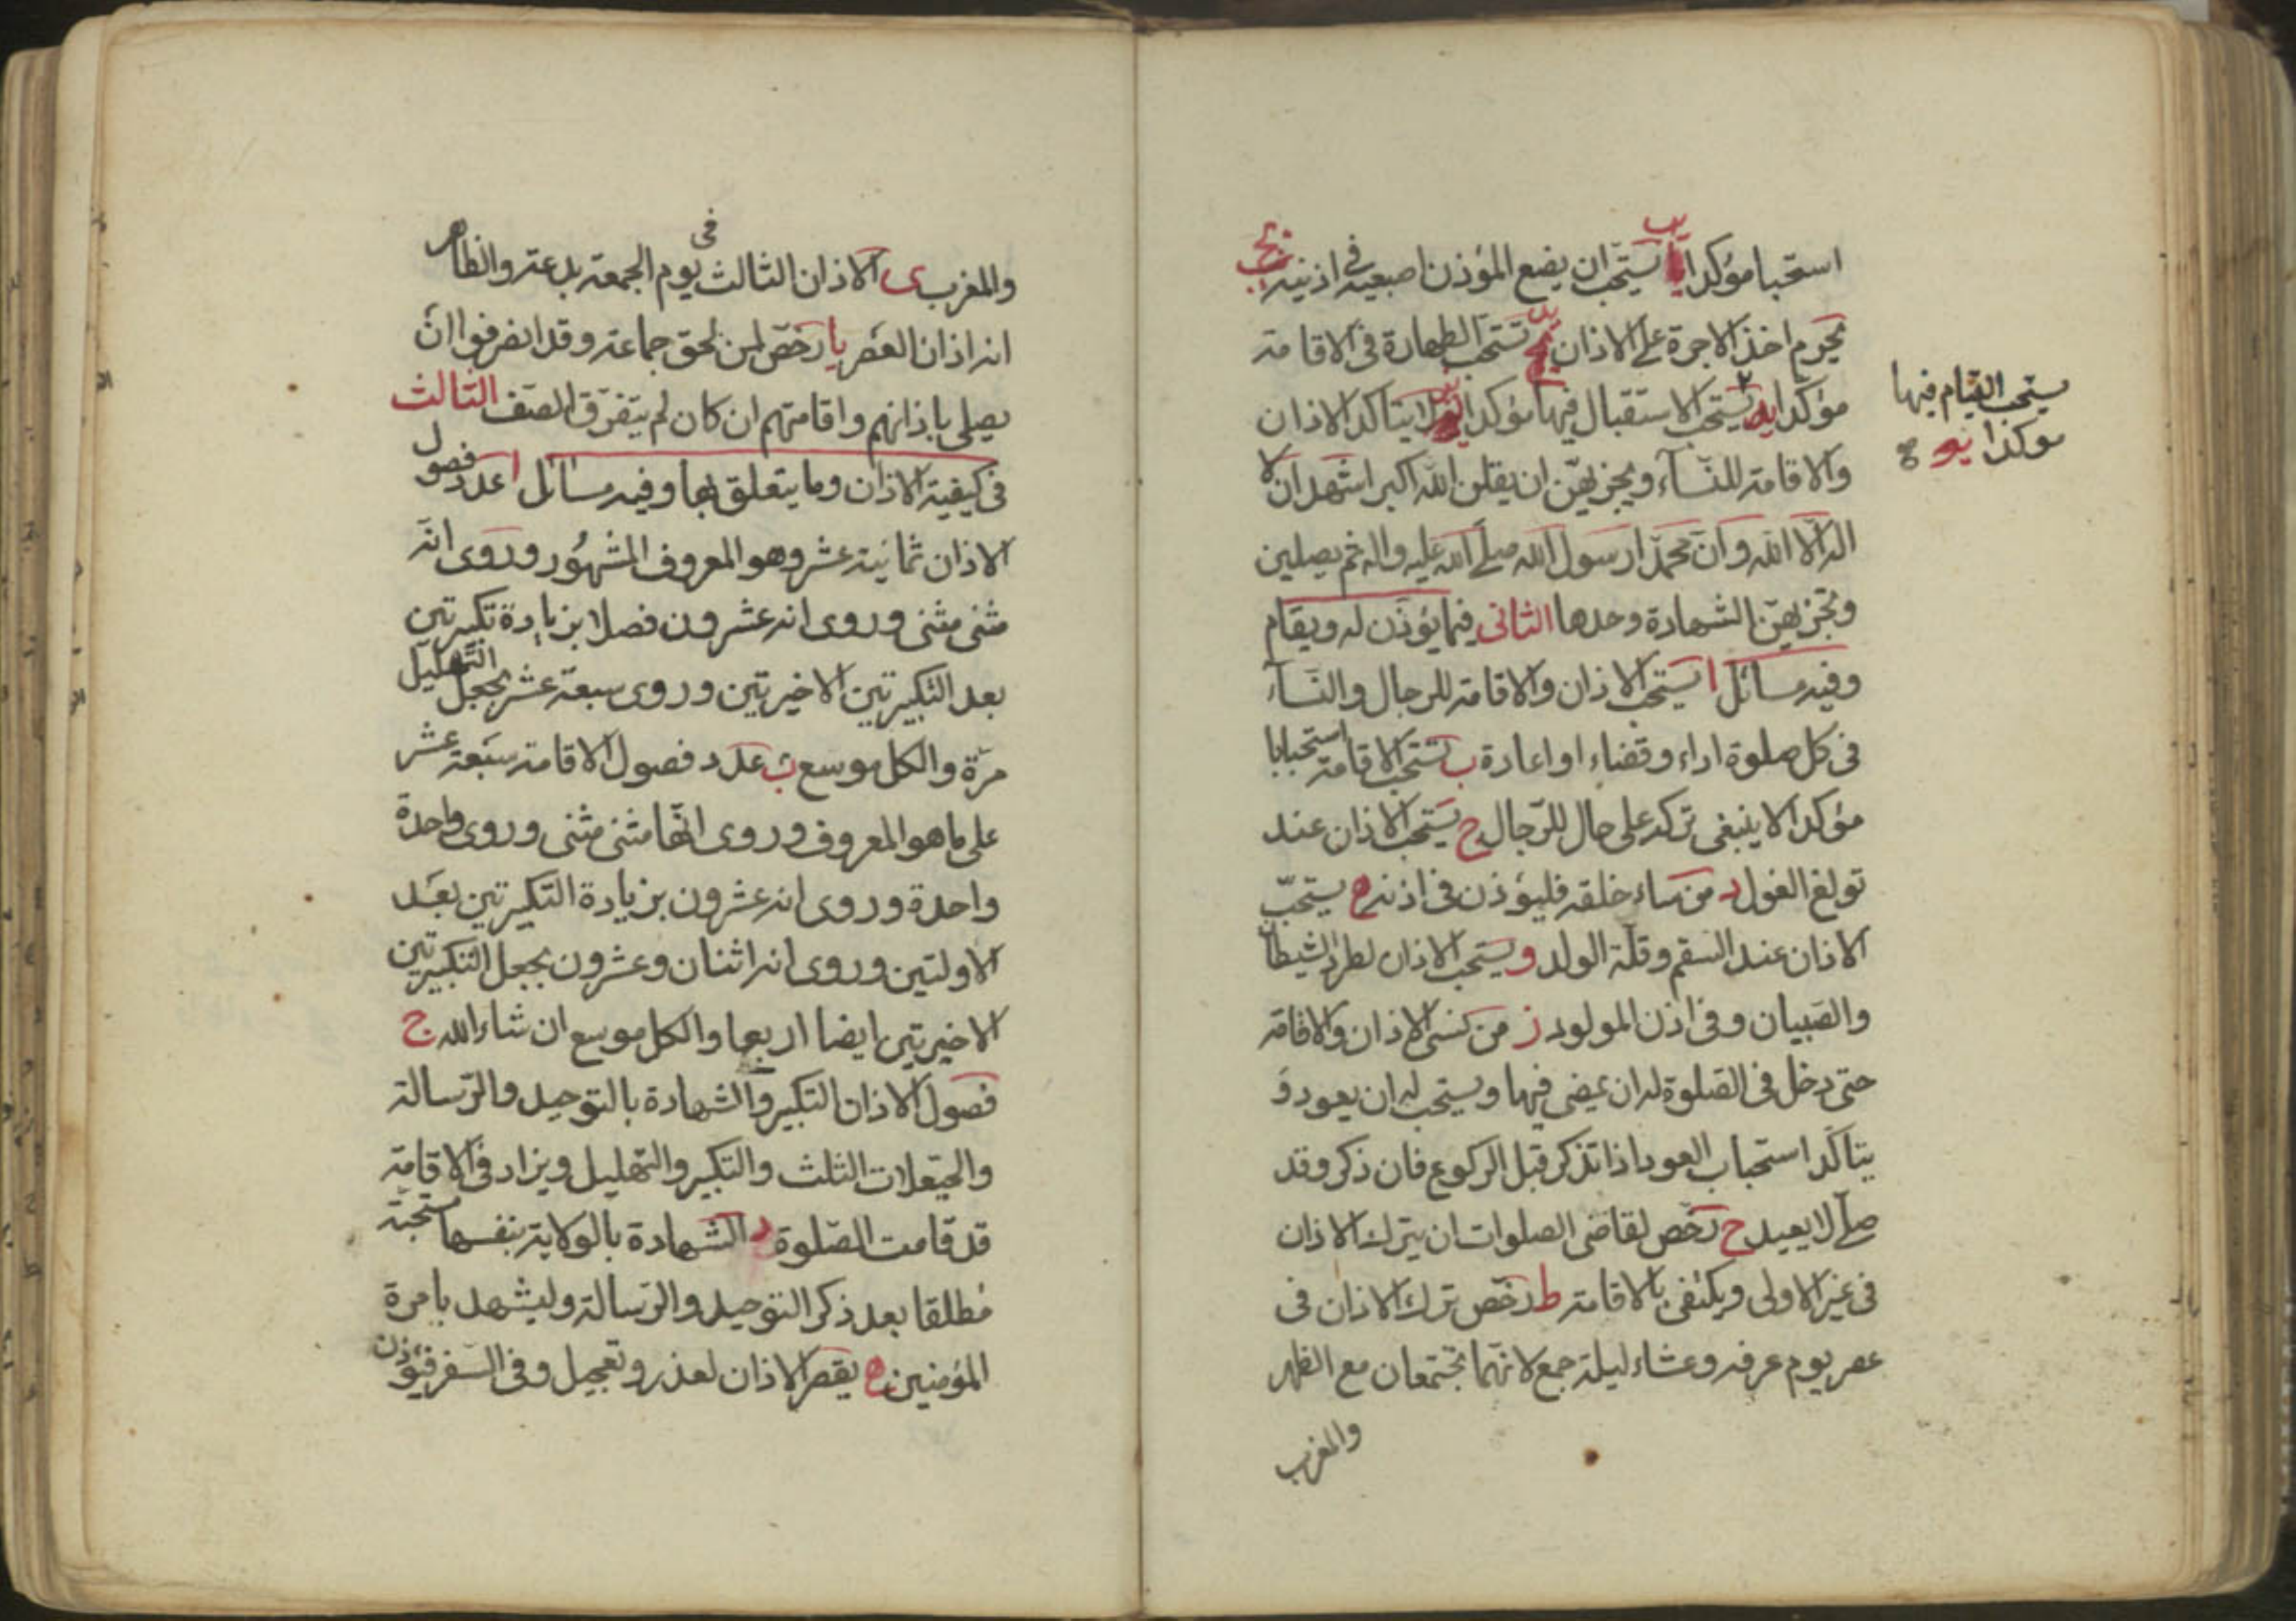 استحبا مؤكدا يب يستحب ان يضع المؤذن اصبعيه في اذنيه يج
يحرم اخذ الاجرة على الاذان يد تستحب الطهارة في الاقامة
مؤكدا يه يستحب الاستقبال فيها مؤكدا لا يتاكد الاذان
يستحب القيام فيها
موكدا يو
والاقامة للنسآء ويجزيهن ان يقلن الله اكبر اشهد ان لا
اله الا الله وان محمدا رسول الله صلى الله عليه واله ثم يصلين
وتجزيهن الشهادة وحدها الثاني فيما يؤذن له ويقام
وفيه مسائل ا يستحب الاذان والاقامة للرجال والنسآء
في كل صلوة اداء وقضاء او اعادة ب تستحب الاقامة استحبابا
مؤكدا لا ينبغي تركه على حال للرجال ج يستحب الاذان عند
تولغ الغول د من ساء خلقه فليؤذن في اذنه ه يستحب
الاذان عند السقم وقلة الولد و يستحب الاذان لطرد الشيطان
والصبيان وفي اذن المولود ز من نسى الاذان والاقامة
حتى دخل في الصلوة له ان يمضي فيها ويستحب له ان يعود و
يتاكد استحباب العود اذا تذكر قبل الركوع فان ذكر وقد
صلى لا يعيد ح رخص لقاضي الصلوات ان يترك الاذان
في غير الاولى ويكتفي بالاقامة ط رخص ترك الاذان في
عصر يوم عرفه وعشاء ليلة جمع لانهما تجتمعان مع الظهر
والمغرب
والمغرب ى الاذان الثالث في يوم الجمعة بدعة والظاهر
انه اذان العصر يا رخص لمن لحق جماعة وقد انصرفوا ان
يصلي باذانهم واقامتهم ان كان لم يتفرق الصف الثالث
في كيفية الاذان وما يتعلق بها وفيه مسائل ا عدد فصول
الاذان ثمانية عشر وهو المعروف المشهور وروى انه
مثنى مثنى وروى انه عشرون فصلا بزيادة تكبيرتين
بعد التكبيرتين الاخيرتين وروى سبعة عشر بجعل التهليل
مرة والكل موسع ب عدد فصول الاقامة سبعة عشر
على ما هو المعروف وروى انها مثنى مثنى وروى واحدة
واحدة وروى انه عشرون بزيادة التكبيرتين بعد
الاولتين وروى انه اثنان وعشرون بجعل التكبيرتين
الاخيرتين ايضا اربعا والكل موسع ان شاء الله ج
فصول الاذان التكبير والشهادة بالتوحيد والرسالة
والحيعلات الثلث والتكبير والتهليل ويزاد في الاقامة
قد قامت الصلوة د الشهادة بالولاية بنفسها مستحبة
مطلقا بعد ذكر التوحيد والرسالة وليشهد بامرة
المؤمنين ه يقصر الاذان لعذر وتعجيل وفي السفر فيؤذن